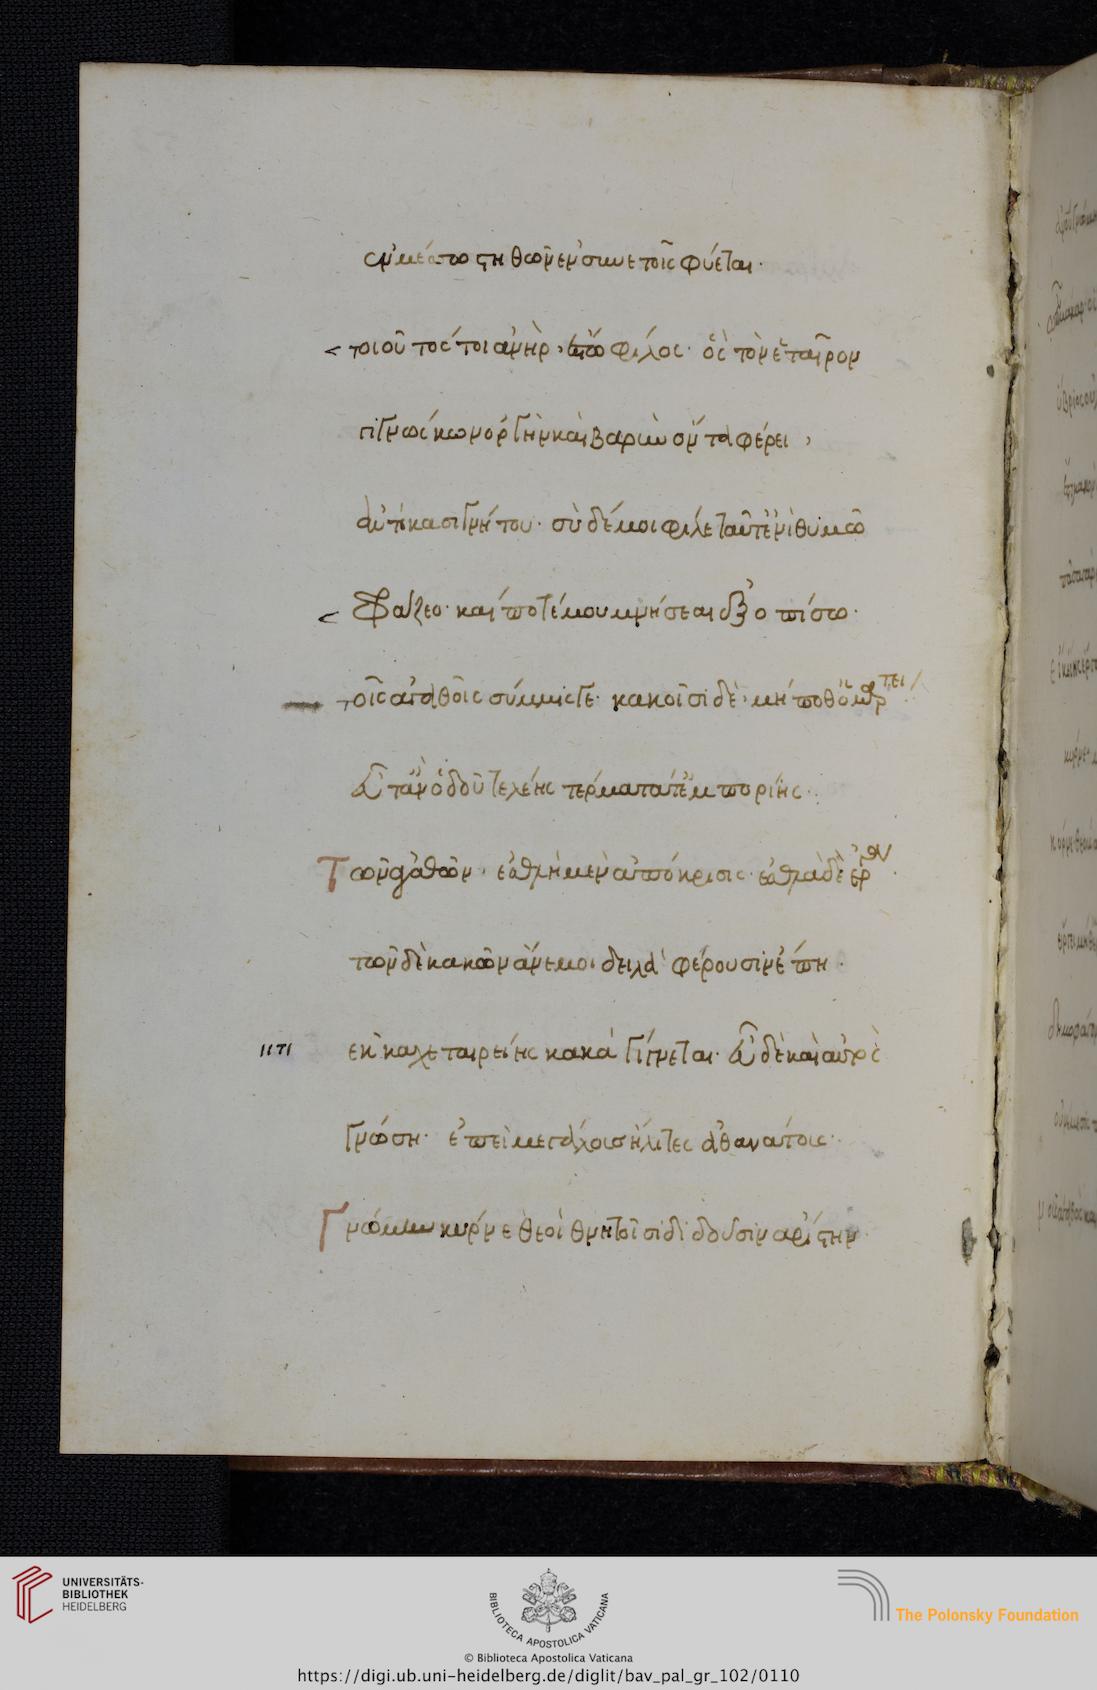 στηθῶν ἐν συνετοῖς φύεται·
τοιοῦτός τοι ἀνὴρ ἔστω φίλος· ὃς τὸν ἑταῖρον
γιγνώσκων ὀργὴν καὶ βαρὺν ὄντα φέρει,
ἀντὶ κασιγνήτου· σὺ δέ μοι φίλε ταῦτ' ἐνὶ θυμῶ
Φράζεο· καί ποτέ μου μνήσεαι ἐξοπίσω·
τοῖς ἀγαθοῖς σύμμισγε· κακοῖσι δὲ, μή ποθ' ὁμάρτει
εὖτ' ἂν ὁδοῦ τελέης τέρματα τἐμπορίης·
Τῶν ἀγαθῶν, ἐσθλὴ μὲν ἀπόκρισις· ἐσθλὰ δὲ ἔργα·
τῶν δὲ κακῶν ἄνεμοι δειλὰ φέρουσιν ἔπη·
1171 ἐκ καχεταιρείης κακὰ γίγνεται· εὖ δὲ καὶ αὐτὸς
γνώση· ἐπεὶ μεγάλοις ἤλιτες ἀθανάτοις·
Γνώμην κύρνε θεοὶ θνητοῖσι διδοῦσιν ἀρίστην·
UNIVERSITÄTS-
BIBLIOTHEK
HEIDELBERG
BIBLIOTECA APOSTOLICA VATICANA
The Polonsky Foundation
© Biblioteca Apostolica Vaticana
https://digi.ub.uni-heidelberg.de/diglit/bav_pal_gr_102/0110